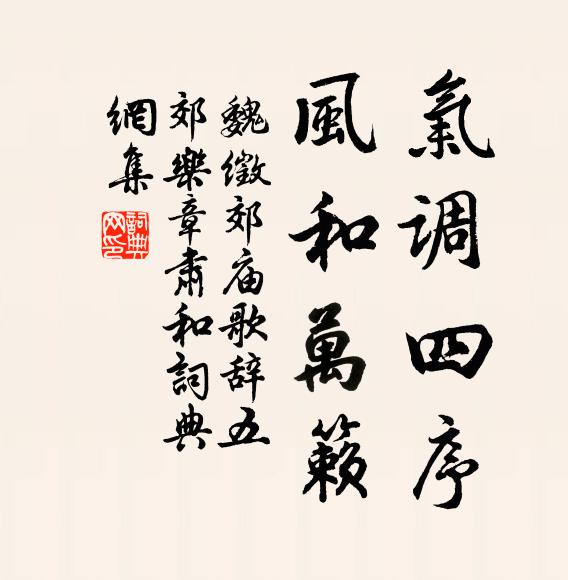 氣調四序
風和萬籟
魏徵郊庙歌辞五
郊樂章肅和詞典
網集
詞典网印